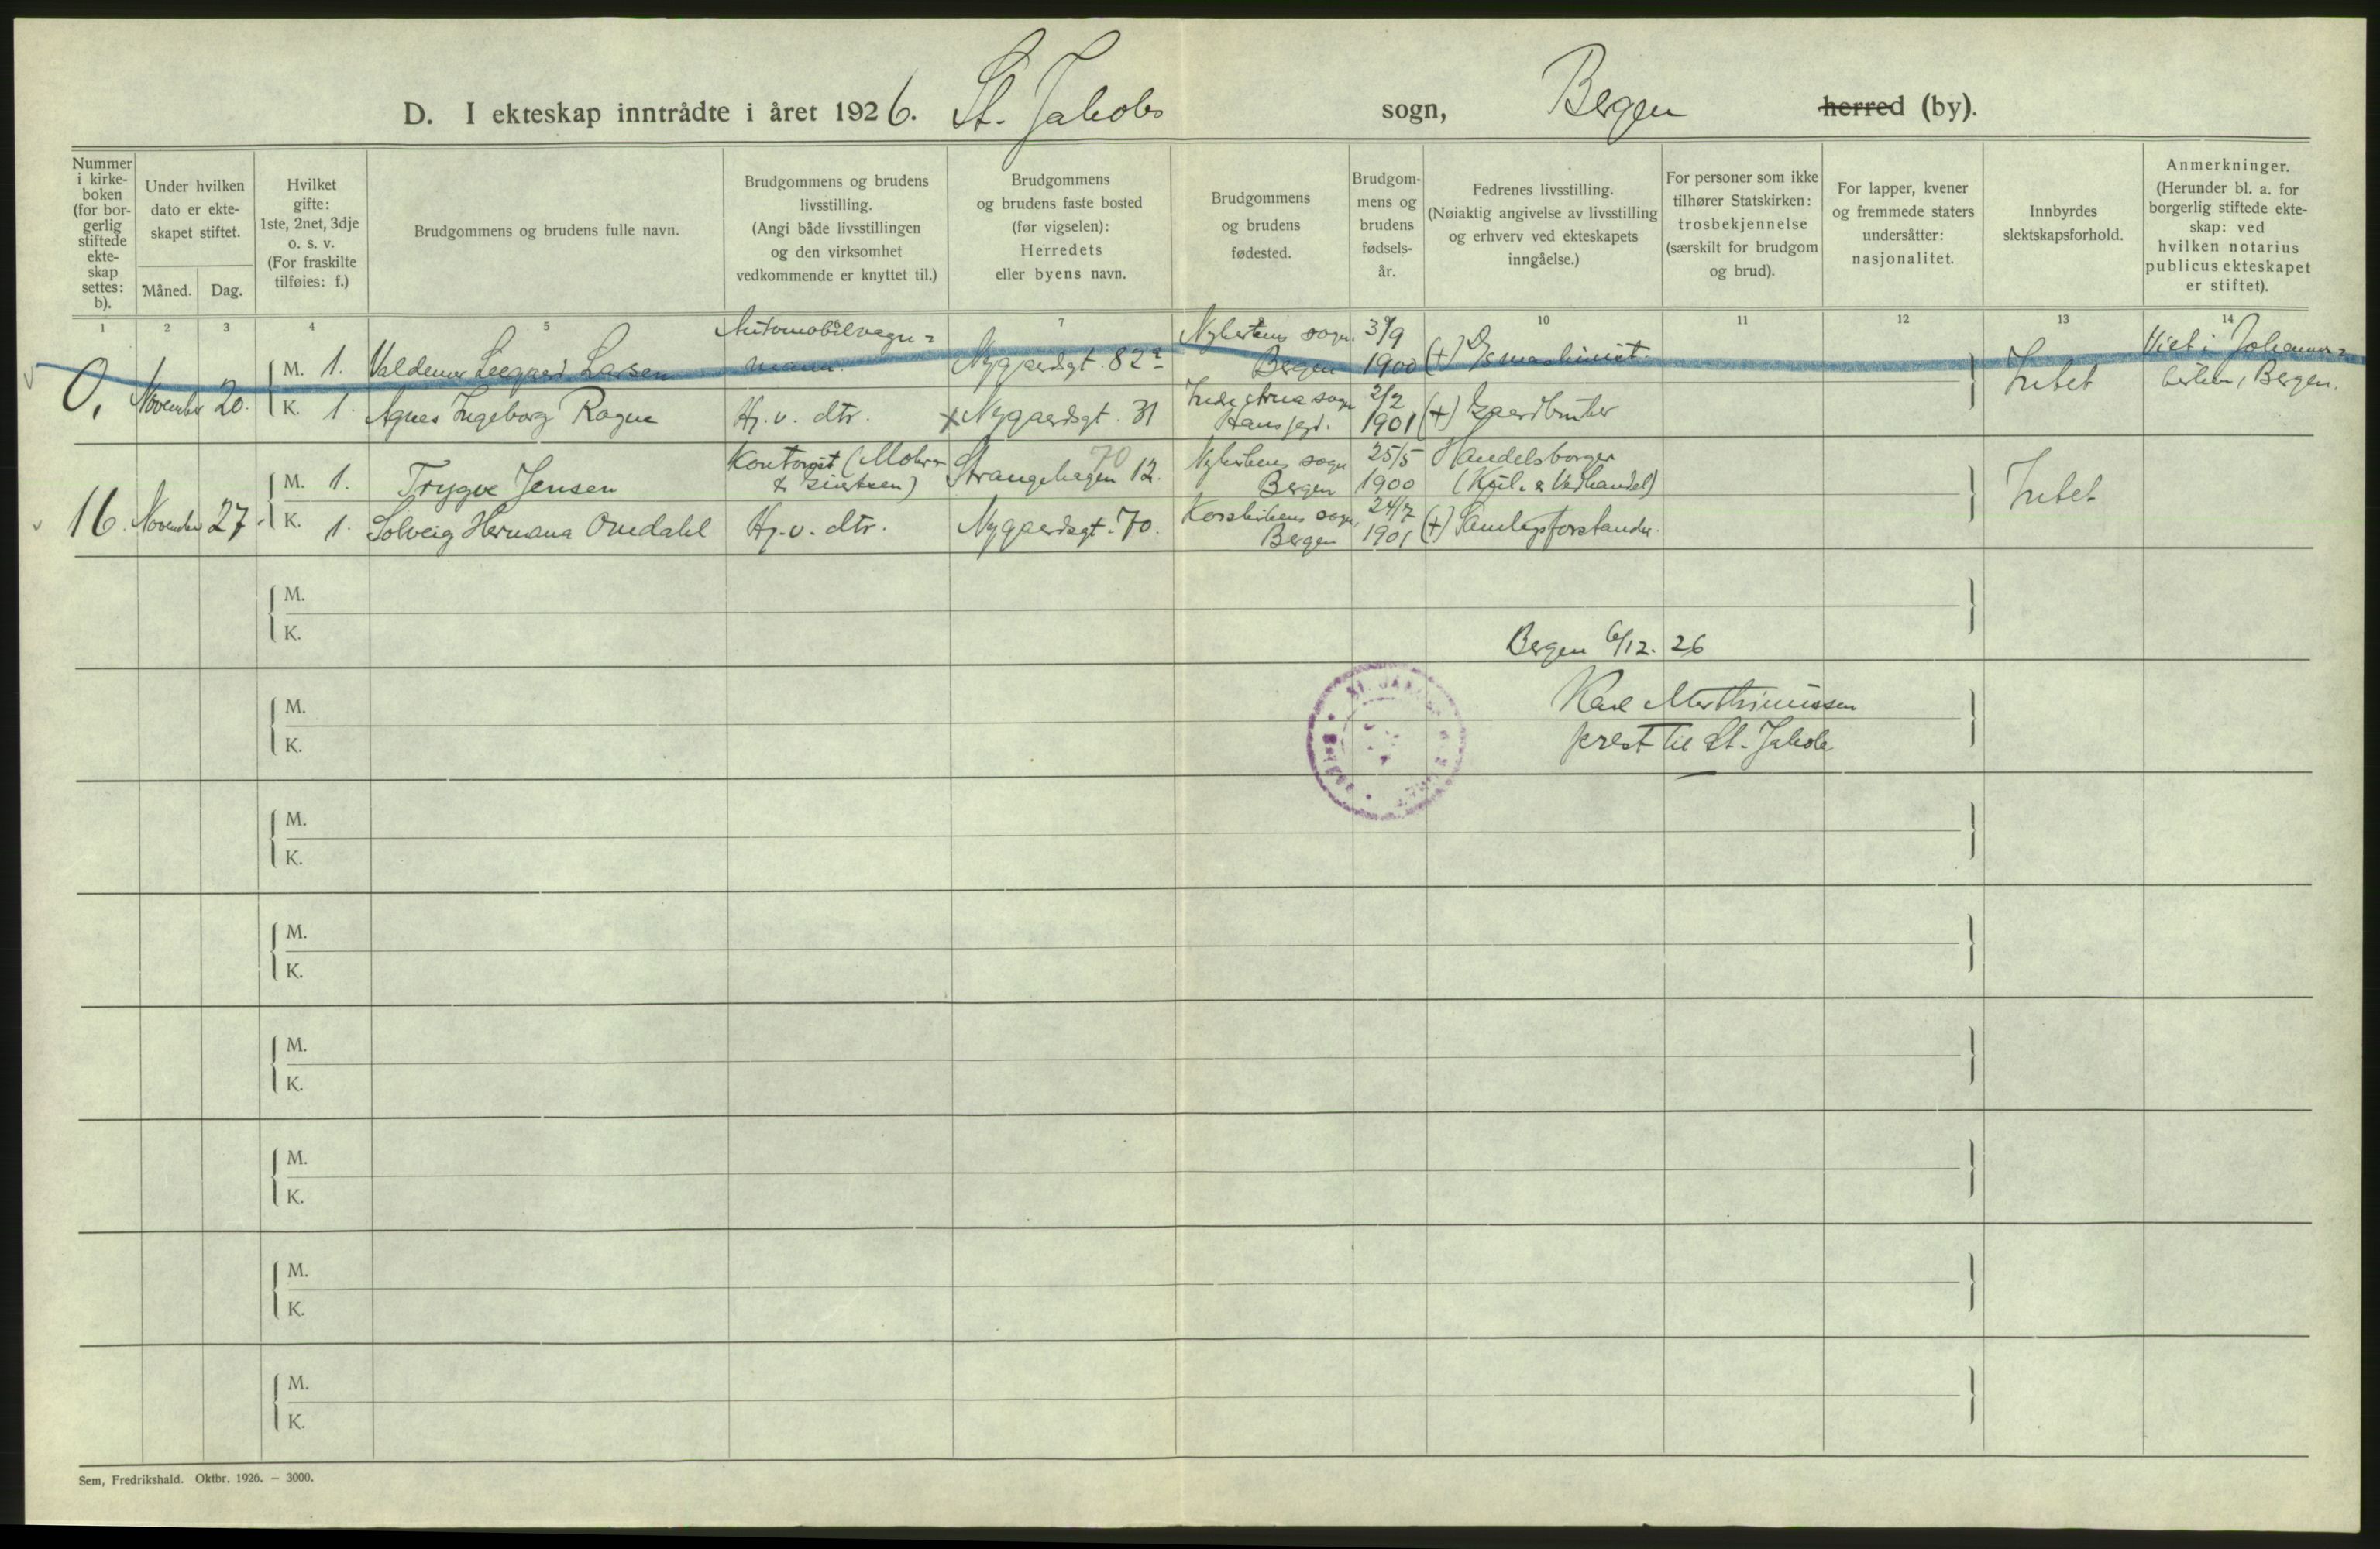 D. I ekteskap inntrådte i året 1926. St. Jakobs sogn, Bergen herred (by).
Nummer
i kirke-
boken
(for bor-
gerlig
stiftede
ekte-
skap
settes:
b).
Under hvilken
dato er ekte-
skapet stiftet.
Måned. Dag.
Hvilket
gifte:
1ste, 2net, 3dje
o. s. v.
(For fraskilte
tilføies: f.)
Brudgommens og brudens fulle navn.
Brudgommens og brudens
livsstilling.
(Angi både livsstillingen
og den virksomhet
vedkommende er knyttet til.)
Brudgommens
og brudens faste bosted
(før vigselen):
Herredets
eller byens navn.
Brudgommens
og brudens
fødested.
Brudgom-
mens og
brudens
fødsels-
år.
Fedrenes livsstilling.
(Nøiaktig angivelse av livsstilling
og erhverv ved ekteskapets
inngåelse.)
For personer som ikke
tilhører Statskirken:
trosbekjennelse
(særskilt for brudgom
og brud).
For lapper, kvener
og fremmede staters
undersåtter:
nasjonalitet.
Innbyrdes
slektskapsforhold.
Anmerkninger.
(Herunder bl. a. for
borgerlig stiftede ekte-
skap: ved
hvilken notarius
publicus ekteskapet
er stiftet).
1 2 3 4 5 7 10 11 12 13 14
0, November 20.
M. 1. Valdemar Leegaard Larsen
Automobilvogn=
mann.
Nygaardsgt. 82a
Nykirkens sogn.
Bergen
1900
(+) D/smaskinist.
Intet
Viet i Johannes=
kirken, Bergen.
K. 1. Agnes Ingeborg Ragna
Hj. v. dtr.
x Nygaardsgt. 31
sogn
2/2
1901
(+) Gaardbruker
16. November 27.
M. 1. Trygve Jensen
Kontorist (Mohr
& Giertsen)
70
Strangehagen 12.
Nykirkens sogn
Bergen
25/5
1900
Handelsborger
(Kul- & Vedhandel)
Intet
K. 1. Solveig Hermana Omdahl
Hj. v. dtr.
Nygaardsgt. 70.
Korskirkens sogn,
Bergen
24/7
1901
(+) Samlagsforstander.
M.
K.
Bergen 6/12. 26
M.
K.
Karl Marthinussen
prest til St. Jakob
M.
K.
M.
K.
M.
K.
M.
K.
M.
K.
M.
K.
Sem, Fredrikshald. Oktbr. 1926. — 3000.